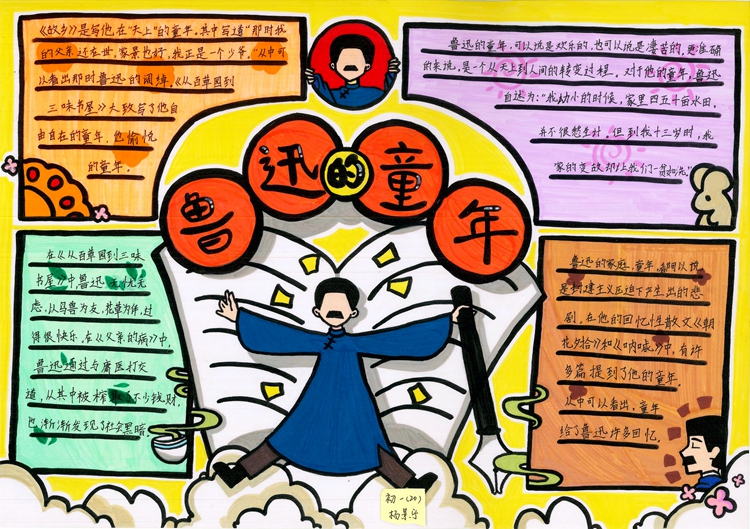 鲁迅的童年
《故乡》是写他在"天上"的童年,其中写道"那时我
的父亲还在世,家景也好,我正是一个少爷。"从中可
以看出那时鲁迅的阔绰。《从百草园到
三味书屋》大致写了他自
由自在的童年,他愉悦
的童年。
鲁迅的童年,可以说是欢乐的,也可以说是凄苦的,更准确
的来说,是一个从天上到人间的转变过程。对于他的童年,鲁迅
自述为:"我幼小的时候,家里四五十亩水田,
并不很愁生计,但到我十三岁时,我
家的变故却让我们一贫如洗。"
在《从百草园到三味
书屋》中鲁迅无忧无
虑,以鸟兽为友,花草为伴,过
得很快乐,在《父亲的病》中,
鲁迅通过与庸医打交
道,从其中被榨取了不少钱财,
也渐渐发现了社会黑暗。
鲁迅的家庭,童年,都可以说
是封建主义压迫下产生出的悲
剧,在他的回忆性散文《朝
花夕拾》和《呐喊》中,有许
多篇提到了他的童年。
从中可以看出,童年
给了鲁迅许多回忆。
初一(20)